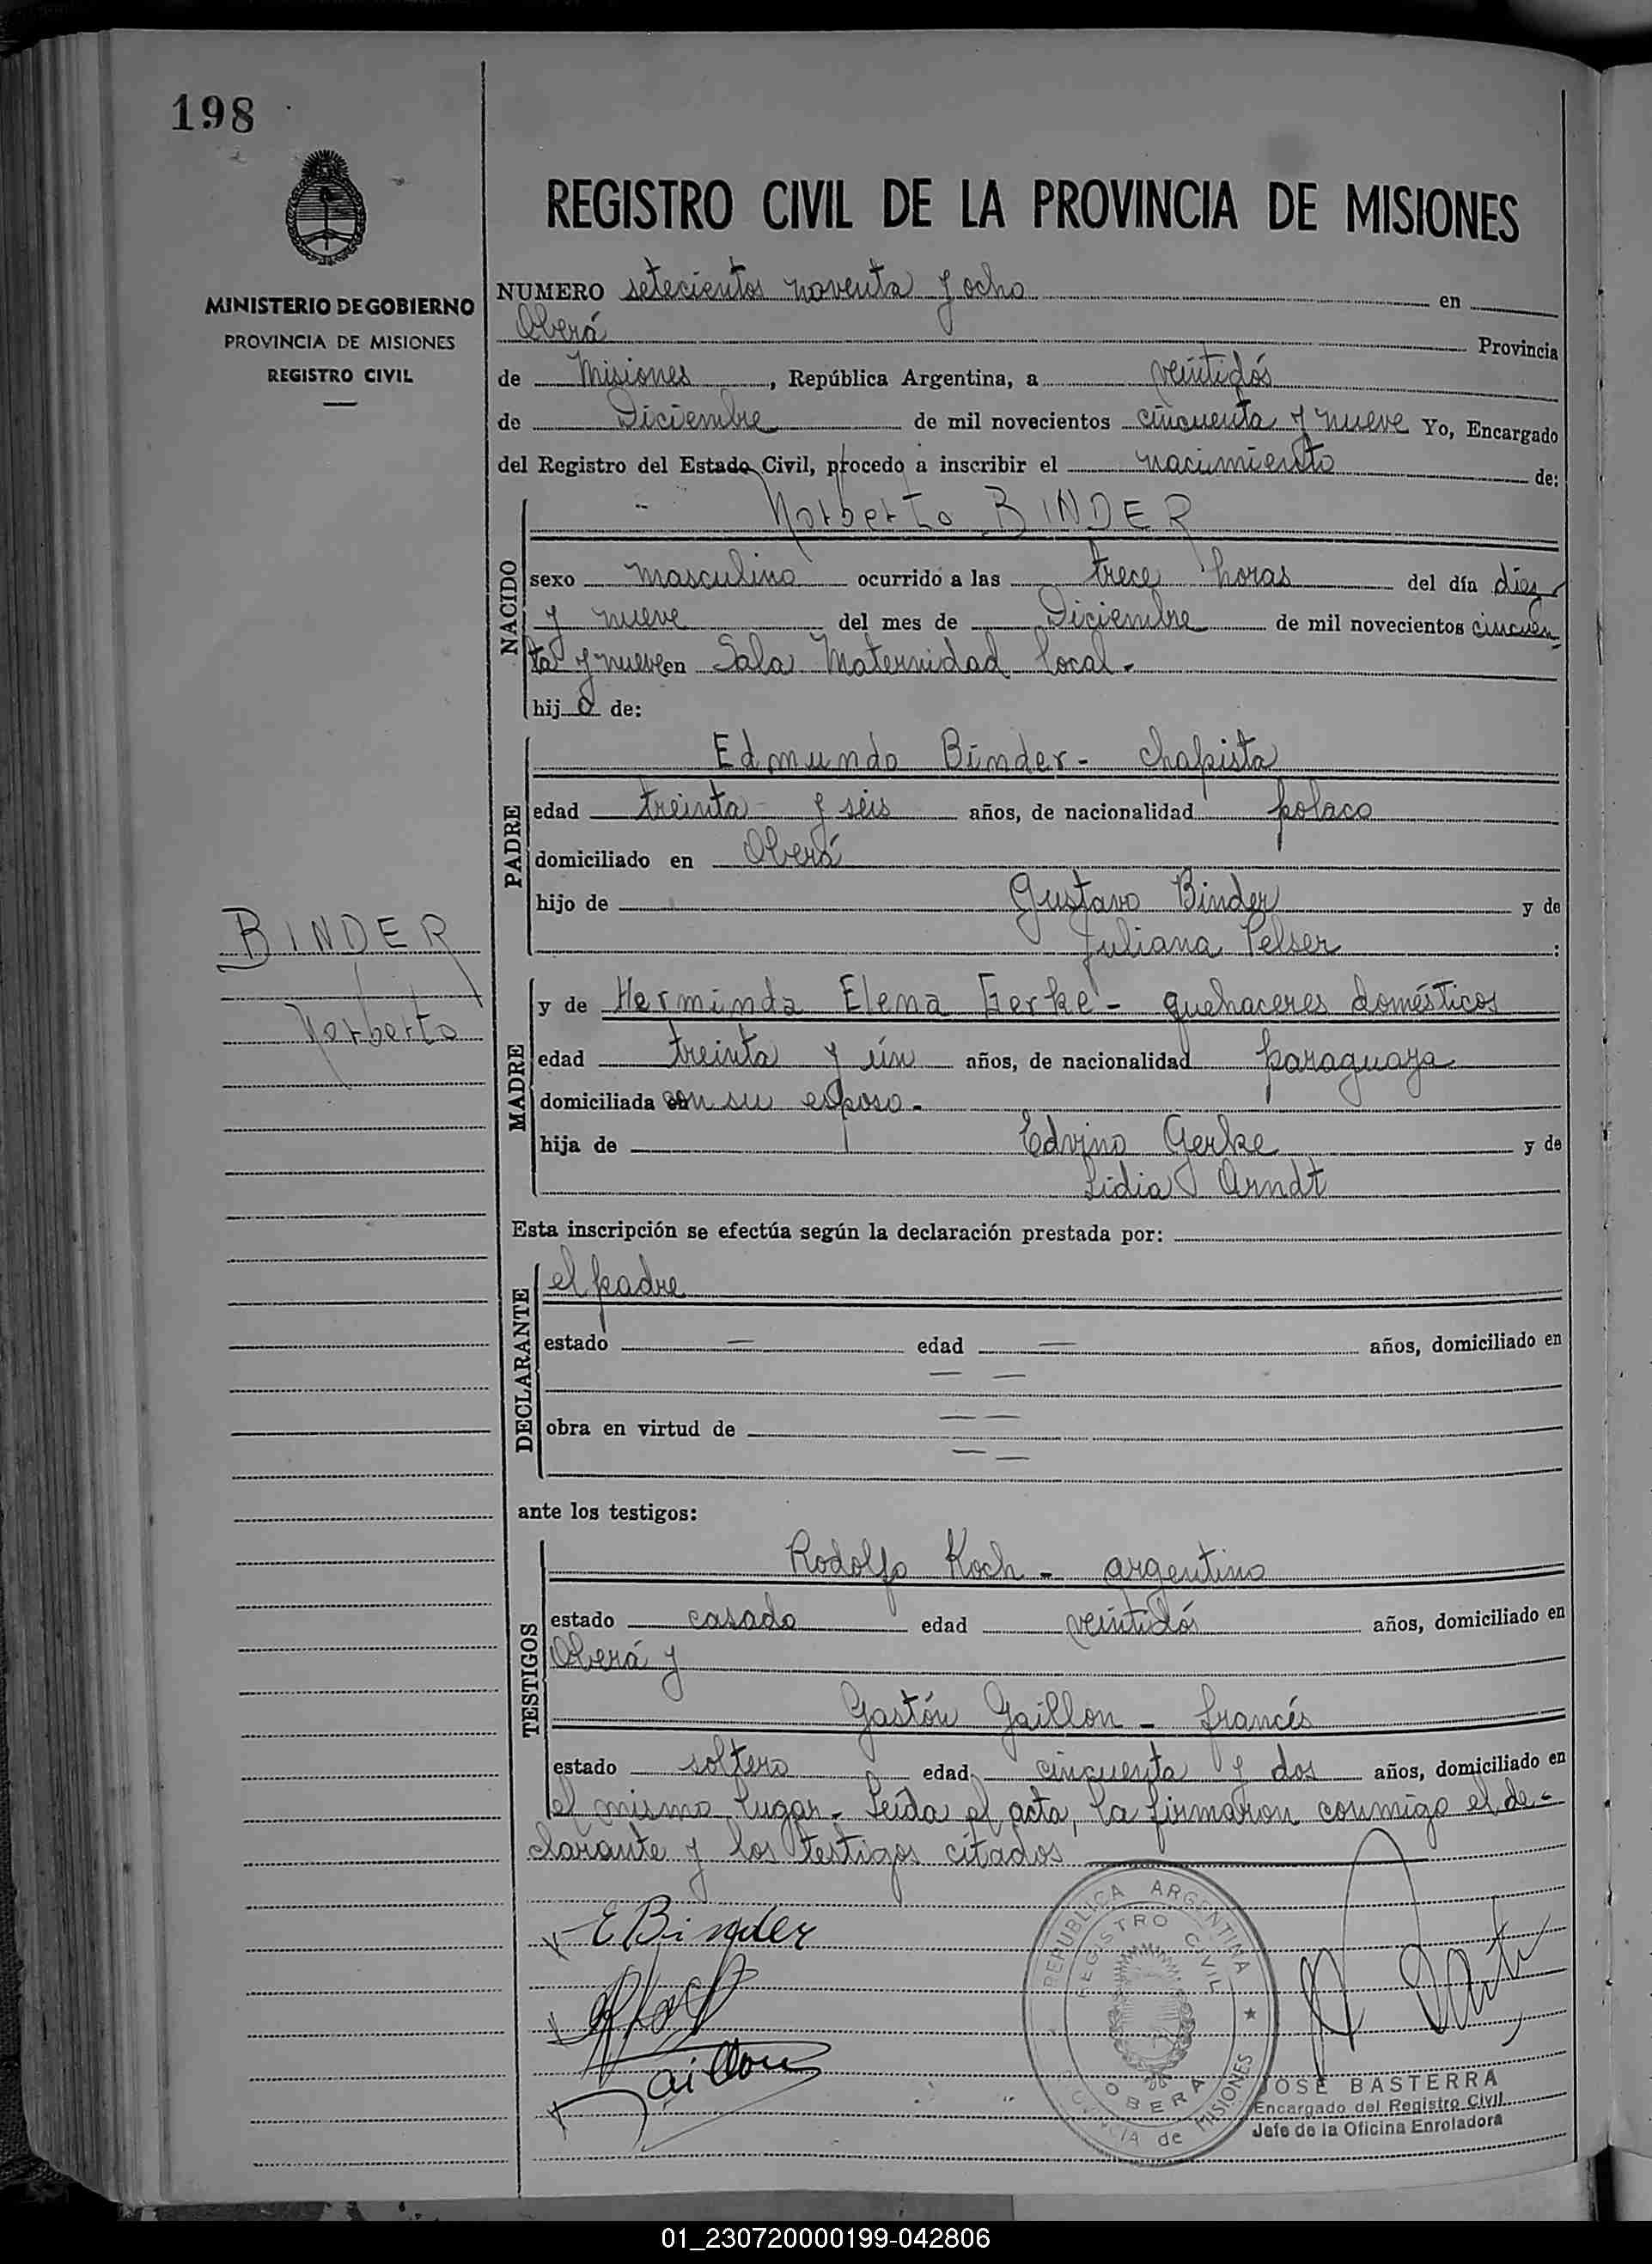 198
REGISTRO CIVIL DE LA PROVINCIA DE MISIONES
MINISTERIO DE GOBIERNO
PROVINCIA DE MISIONES
REGISTRO CIVIL
NUMERO setecientos noventa y ocho en
Oberá Provincia
de Misiones, República Argentina, a veintidós
de Diciembre de mil novecientos cincuenta y nueve Yo, Encargado
del Registro del Estado Civil, procedo a inscribir el nacimiento de:
NACIDO
Norberto BINDER
sexo masculino ocurrido a las trece horas del día diez
y nueve del mes de Diciembre de mil novecientos cincuen
ta y nueve en Sala Maternidad local.
hijo de:
PADRE
Edmundo Binder - chapista
edad treinta y seis años, de nacionalidad polaco
domiciliado en Oberá
hijo de Gustavo Binder y de
Juliana Pelser :
BINDER
Norberto
MADRE
y de Herminda Elena Gerke - quehaceres domésticos
edad treinta y un años, de nacionalidad paraguaya
domiciliada con su esposo.
hija de Edvino Gerke y de
Lidia Arndt
Esta inscripción se efectúa según la declaración prestada por:
DECLARANTE
el padre
estado — edad — años, domiciliado en
— —
obra en virtud de — —
— —
ante los testigos:
TESTIGOS
Rodolfo Koch - argentino
estado casado edad veintidós años, domiciliado en
Oberá y
Gastón Gaillon - francés
estado soltero edad cincuenta y dos años, domiciliado en
el mismo lugar. Leída el acta, la firmaron conmigo el de-
clarante y los testigos citados
E Binder
Gaillon
REPUBLICA ARGENTINA
REGISTRO CIVIL
OBERA
PROVINCIA de MISIONES
JOSE BASTERRA
Encargado del Registro Civil
Jefe de la Oficina Enroladora
01_230720000199-042806